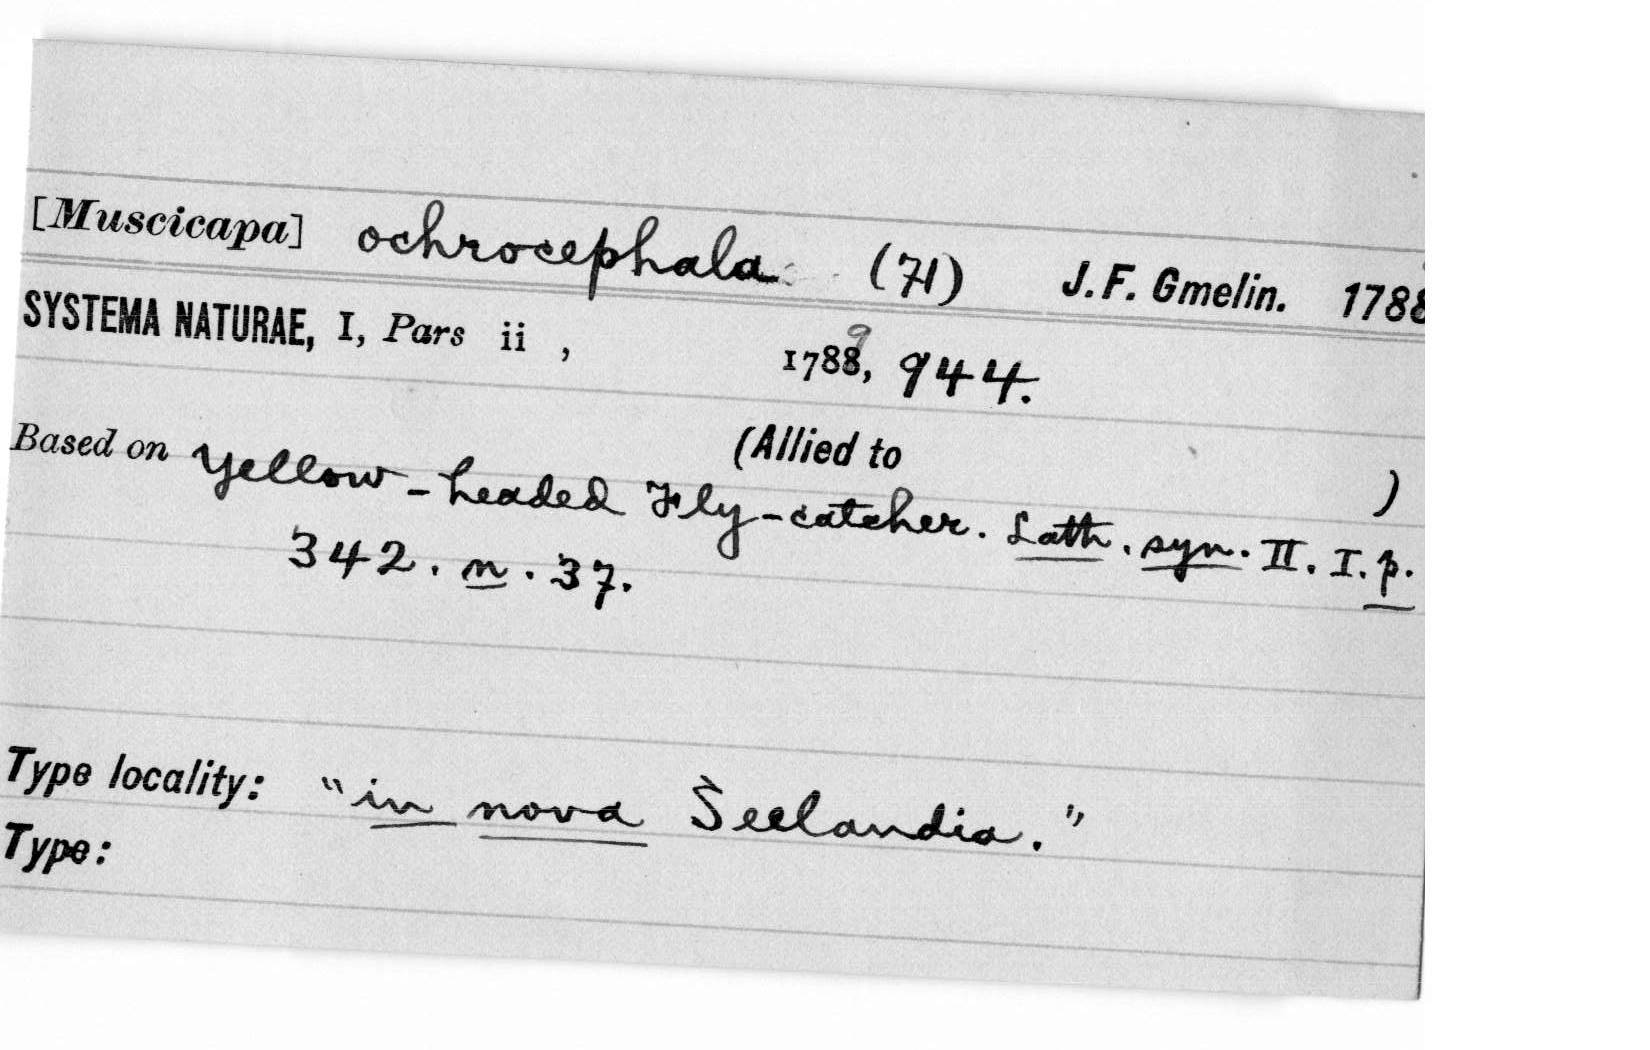 [Muscicapa] ochrocephala (71) J. F. Gmelin. 1788
SYSTEMA NATURAE, I, Pars ii , 1788, 9 944.
(Allied to )
Based on Yellow-headed Fly-catcher. Lath. syn. II. I. p.
342. n. 37.
Type locality: "in nova Seelandia."
Type: